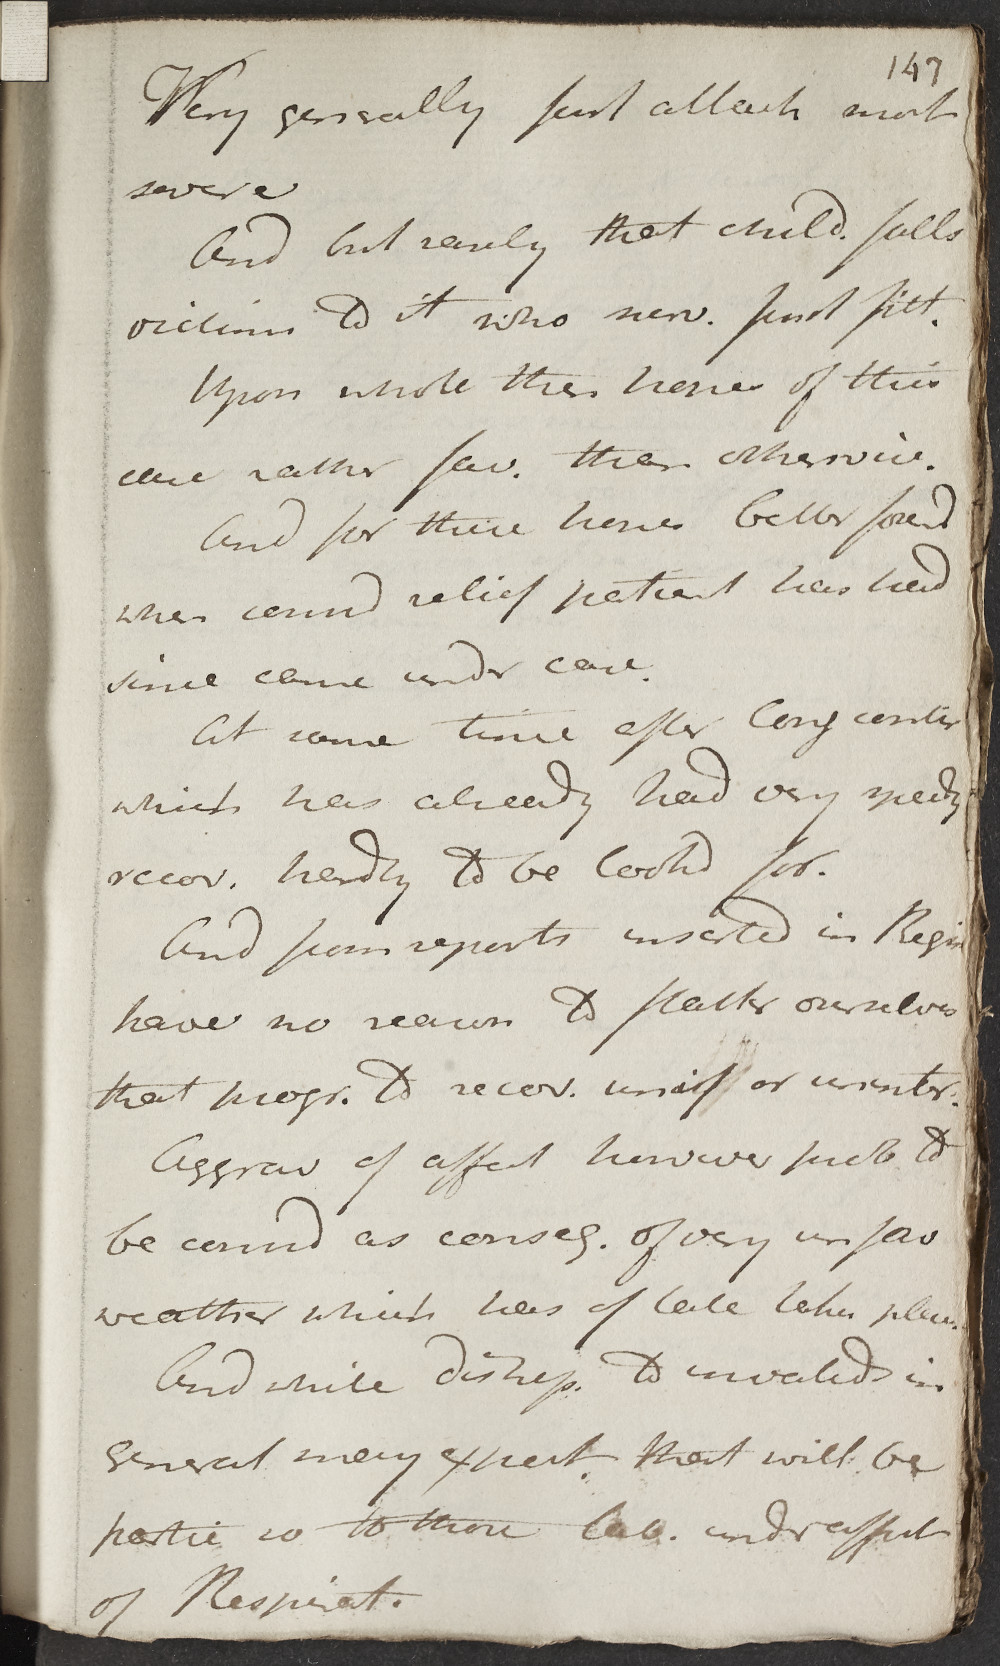 147
Very generally first attack most
severe
And but rarely that child. falls
victim to it who surv. first fitt.
Upon whole then hence of this
case rather fav. than otherwise.
And for these hence better found
when consid relief patient has had
since came under care.
At same time after long contin
which has already had very speedy
recov. hardly to be lookd for.
And from reports inserted in Regis
have no reason to flatter ourselves
that progr. to recov. unif or uninter.
Aggrav of affect however prob to
be consid as conseq. of very unfav
weather which has of late taken place
And while distresf. to invalids in
general may expect that will be
partic so to those lab. under affect
of Respirat.